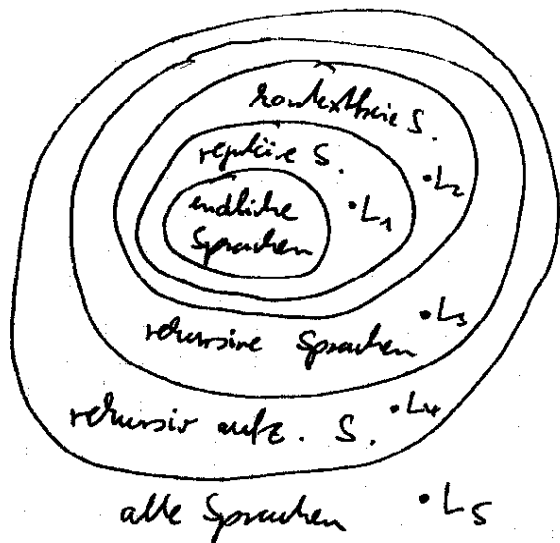 kontextfreie S.
reguläre S.
• L2
endliche
• L1
Sprachen
• L3
rekursive Sprachen
• L4
rekursiv aufz. S.
alle Sprachen • L5